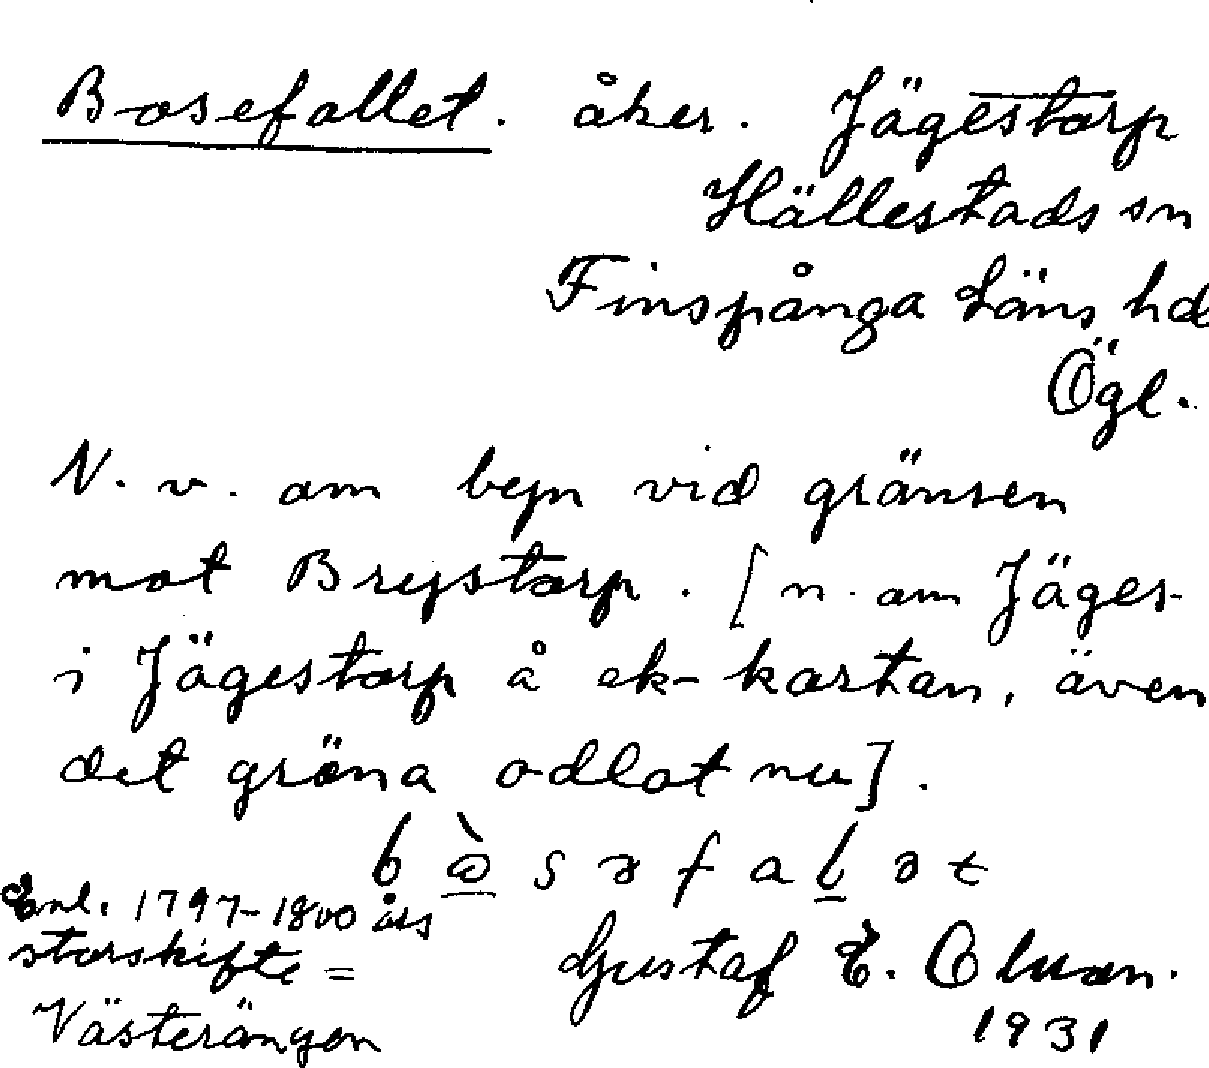 Bosefallet. åker. Jägestorp
Hällestads sn
Finspånga läns hd
Ögl.
N. v. om byn vid gränsen
mot Brystorp. [n. om Jäges-
i Jägestorp å ek-kartan, även
det gröna odlat nu].
Enl. 1797-1800 års
storskifte =
Västerängen
Gustaf E.
1931